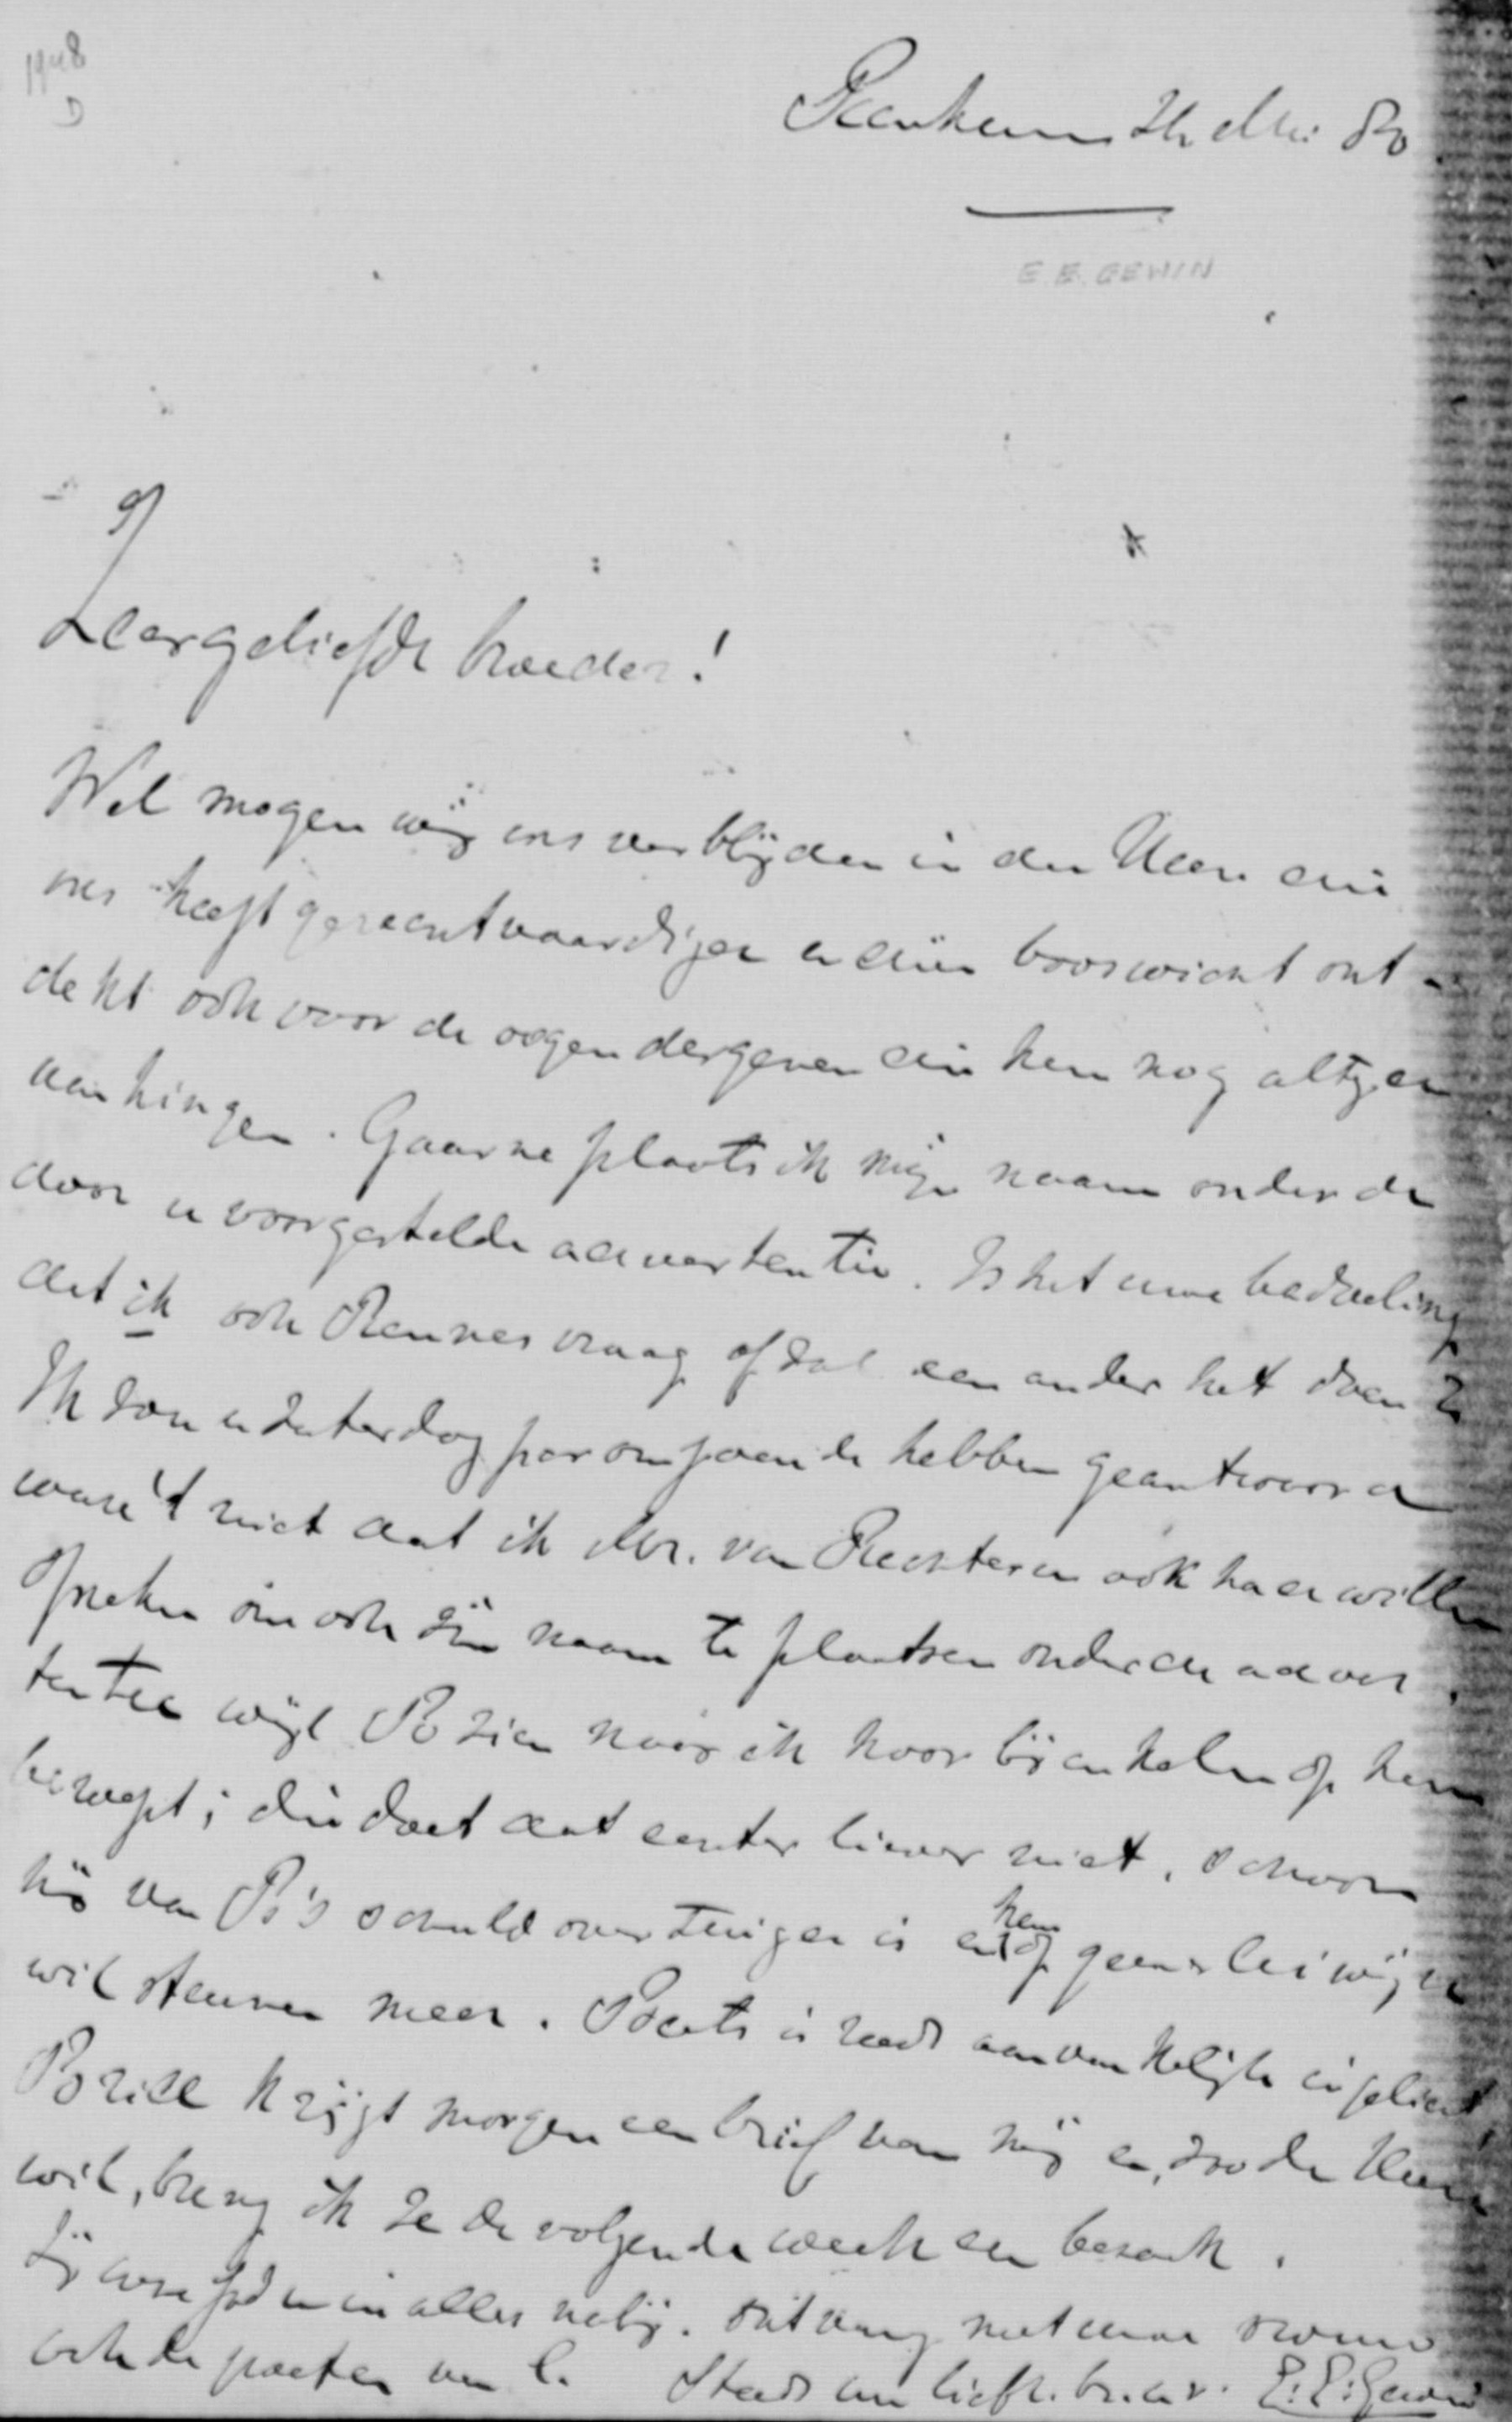 1948
D
80
E. E. GEWIN
Zeergeliefde broeder!
Wel mogen wij ons verblijden in den Heer die
ons heeft gerechtvaardigd en dien booswicht ont-
dekt ook voor de oogen dergenen die hem nog altijd
aanhingen. Gaarne plaats ik mijn naam onder de
door u voorgestelde advertentie. Is het uwe bedoeling
dat ik ook vraag of zal een ander het doen?
Ik zou u Zaterdag per omgaande hebben geantwoord
ware 't niet dat ik Mr. van Rechteren ook had willen
spreken om ook zijn naam te plaatsen onder de adver-
tentie wijl naar ik hoor bij enkelen op hem
beroept; die doet dat echter liever niet, schoon
hij van P's schuld overtuigd is en hem op geenerlei wijze
wil steunen meer. is reeds aanvankelijk
krijgt morgen een brief van mij en, zoo de Heer
wil, breng ik ze de volgende week een bezoek.
Zij onze God u in alles nabij. Ontvang met uwe vrouw
ook de groeten van C. Steeds uw liefh. br. E. E. Gewin